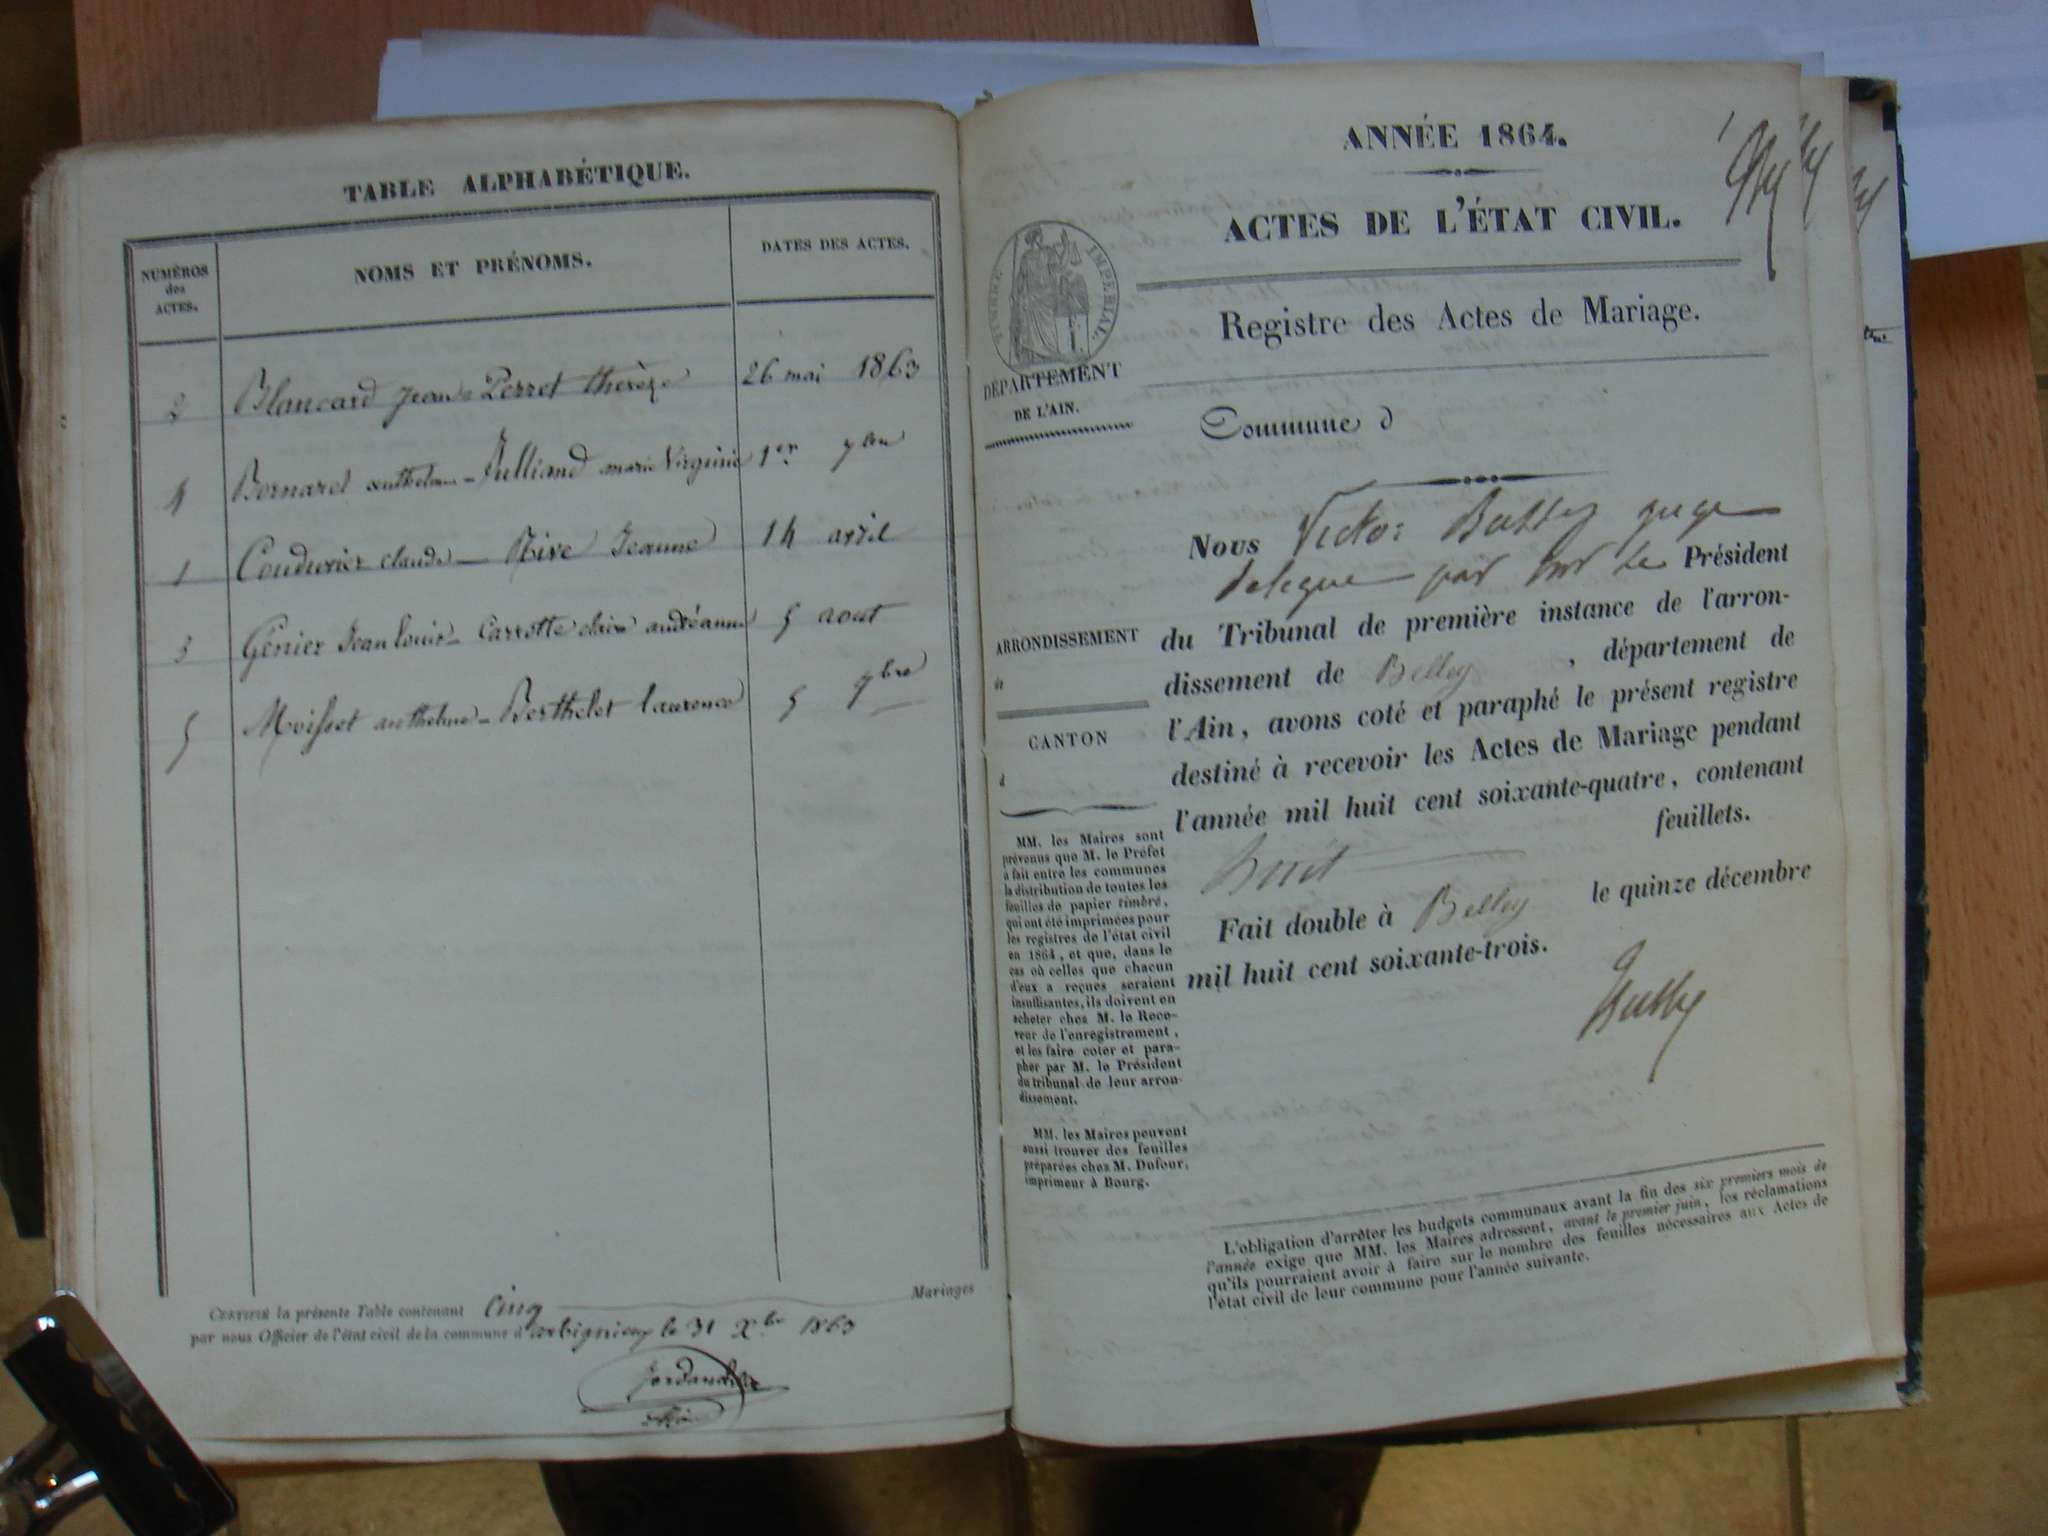 TABLE ALPHABÉTIQUE.
NUMÉROS
des
ACTES.
NOMS ET PRÉNOMS.
DATES DES ACTES.
2 Blancard Jean - Perret thérèze 26 mai 1863
4 Bernard anthelme - Julliand marie Virginie 1er 9bre
1 Coudurier claude - Rive Jeanne 14 avril
3 Génier Jean louis - Carrotte claire andréanne 5 aout
5 Moisset anthelme - Berthelet laurence 5 9bre
CERTIFIÉE la présente Table contenant cinq Mariages
par nous Officier de l'état civil de la commune d'arbignieu le 31 Xbre 1863
ANNÉE 1864.
ACTES DE L'ÉTAT CIVIL.
TIMBRE IMPÉRIAL
Registre des Actes de Mariage.
DÉPARTEMENT
DE L'AIN.
Commune d
Nous Victor juge
délégué par le Président
du Tribunal de première instance de l'arron-
dissement de Belley , département de
l'Ain, avons coté et paraphé le présent registre
destiné à recevoir les Actes de Mariage pendant
l'année mil huit cent soixante-quatre, contenant
huit feuillets.
Fait double à Belley le quinze décembre
mil huit cent soixante-trois.
ARRONDISSEMENT
CANTON
d
MM. les Maires sont
prévenus que M. le Préfet
a fait entre les communes
la distribution de toutes les
feuilles de papier timbré,
qui ont été imprimées pour
les registres de l'état civil
en 1864, et que, dans le
cas où celles que chacun
d'eux a reçues seraient
insuffisantes, ils doivent en
acheter chez M. le Rece-
veur de l'enregistrement,
et les faire coter et para-
pher par M. le Président
du tribunal de leur arron-
dissement.
MM. les Maires peuvent
aussi trouver des feuilles
préparées chez M. Dufour,
imprimeur à Bourg.
L'obligation d'arrêter les budgets communaux avant la fin des six premiers mois de
l'année exige que MM. les Maires adressent, avant le premier juin, les réclamations
qu'ils pourraient avoir à faire sur le nombre des feuilles nécessaires aux Actes de
l'état civil de leur commune pour l'année suivante.